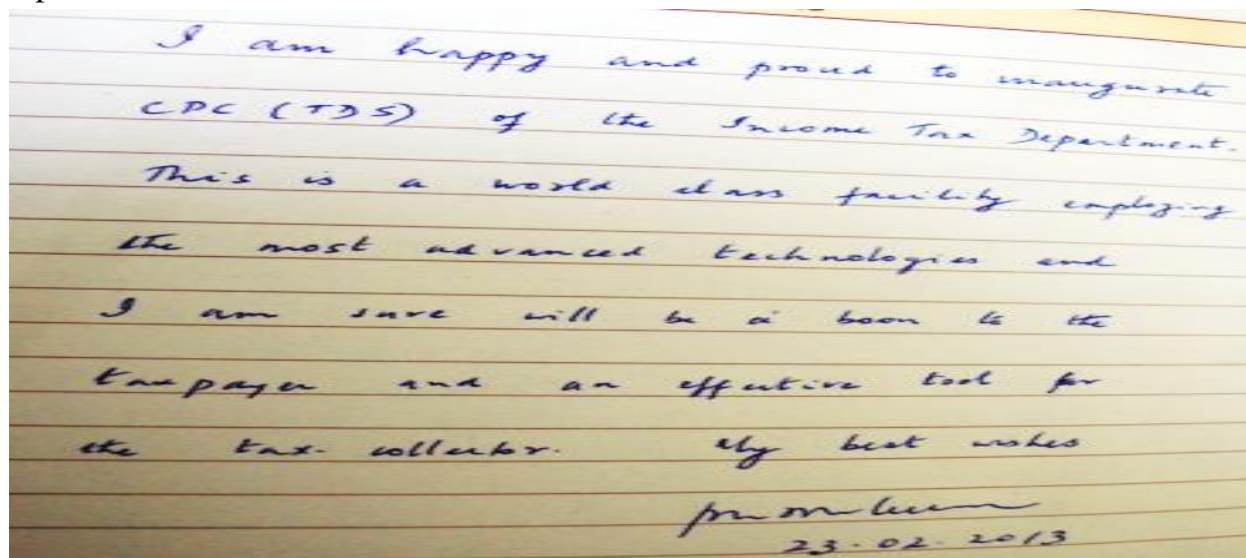 I am happy and proud to inaugurate
CPC (TDS) of the Income Tax Department.
This is a world class facility employing
the most advanced technologies and
I am sure will be a boon to the
taxpayer and an effective tool for
the tax-collector. My best wishes
23.02.2013